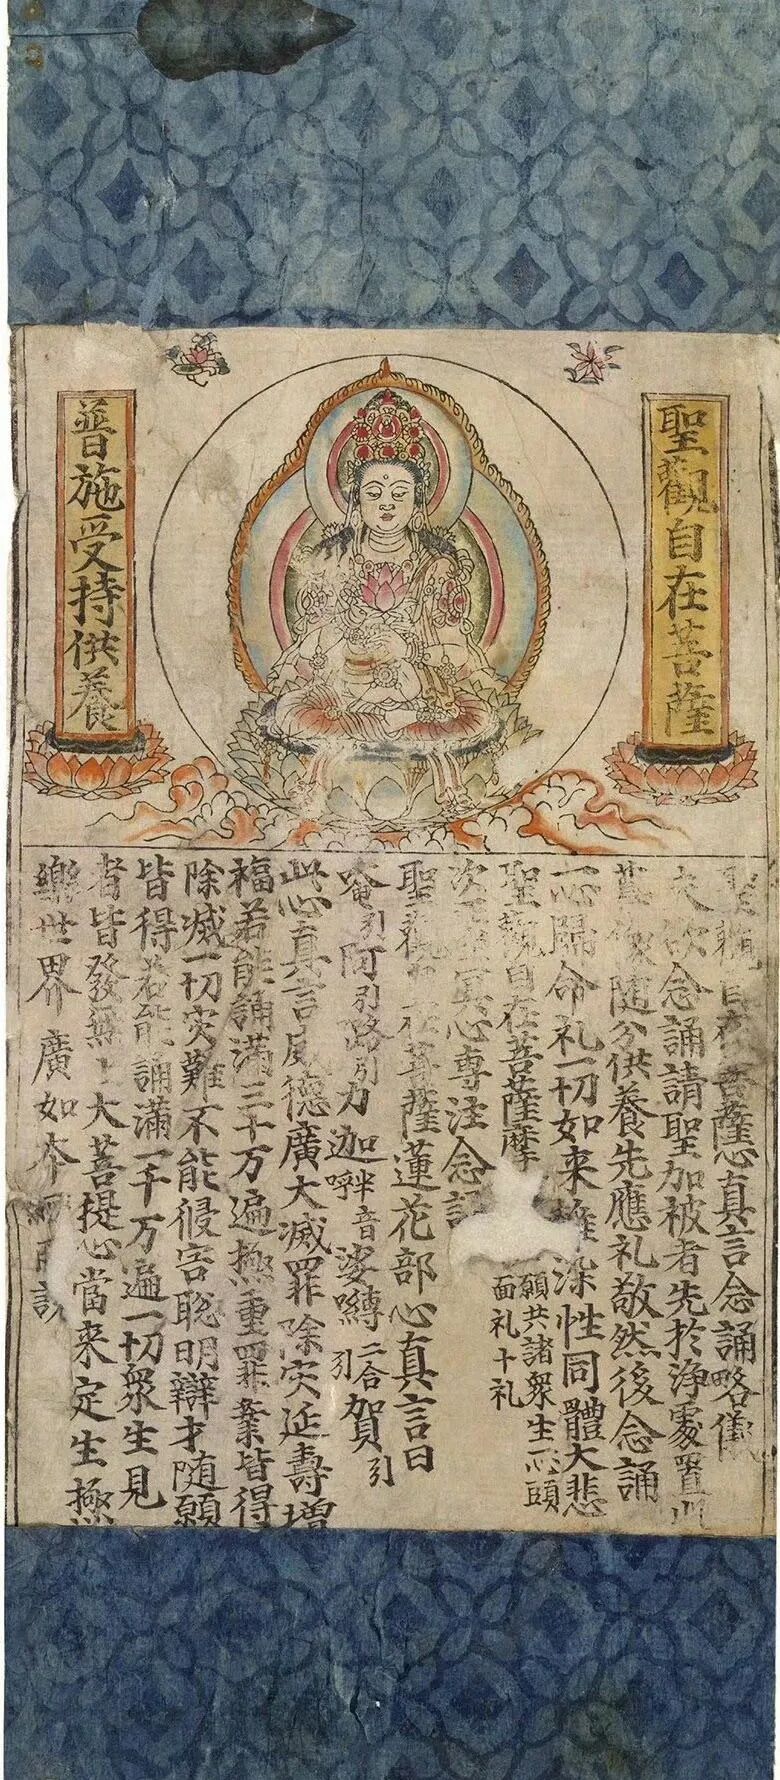 聖觀自在菩薩
普施受持供養
聖觀自在菩薩心真言念誦略儀
夫欲念誦請聖加被者先於淨處置此
尊像随分供養先應礼敬然後念誦
一心歸命礼一切如来離染性同體大悲
聖觀自在菩薩摩 願共諸衆生一心頭面礼十礼
次冥心專注念誦
聖觀自在菩薩蓮花部心真言曰
唵引阿引路引力迦半音呼娑嚩二合引賀引
此心真言威德廣大滅罪除灾延壽增
福若能誦滿三十万遍極重罪業皆得
除滅一切灾難不能侵害聡明辯才随願
皆得若能誦滿一千万遍一切衆生見
者皆發無上大菩提心當来定生極
樂世界廣如本經所説